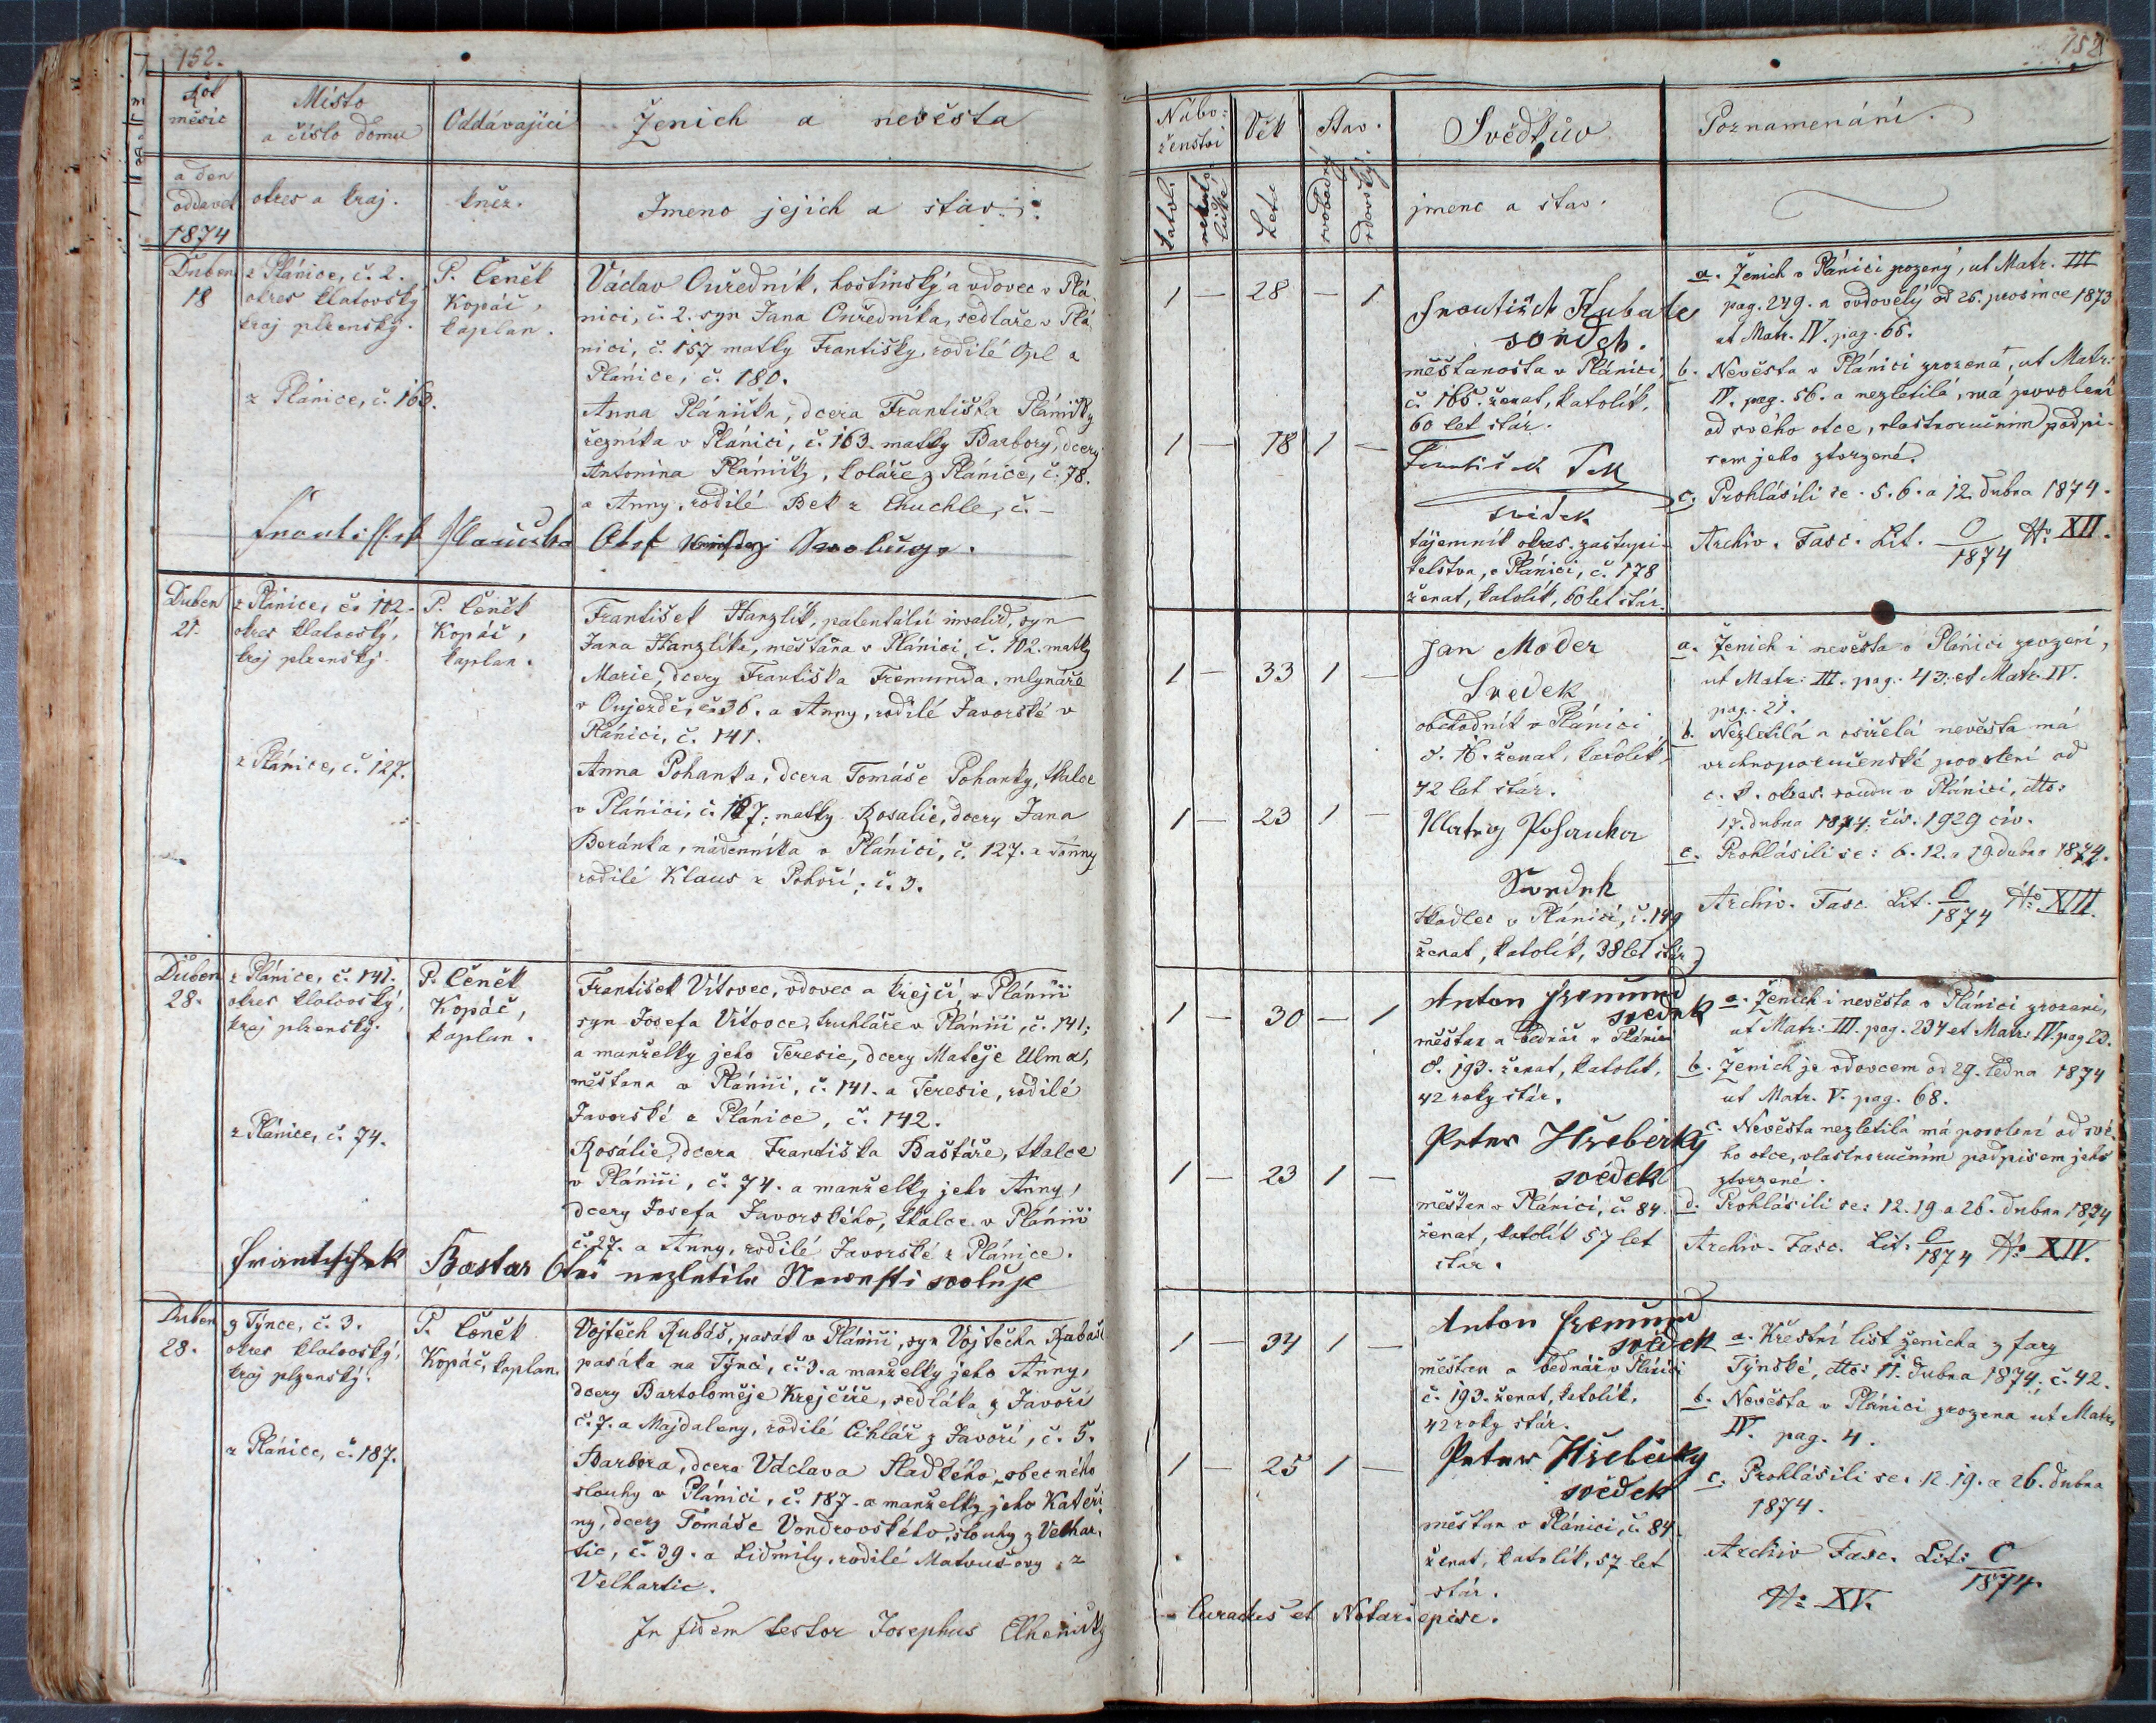 152.
Rok
měsíc
a den
oddavek
1874
Místo
a číslo domu
okres a kraj.
Oddávající
kněz.
Ženich a nevěsta
Jmeno jejich a stav.
Duben
18
z Plánice, č. 2.
okres klatovský
kraj plzenský.
z Plánice, č. 163.
P. Čeněk
Kopáč,
kaplan.
Václav Ouředník, hostinský a vdovec v Plá-
nici, č. 2. syn Jana Ouředníka, sedláře v Plá-
nici, č. 157 matky Františky, rodilé Opl z
Plánice, č. 180.
Anna Plánička, dcera Františka Pláničky
řezníka v Plánici, č. 163. matky Barbory, dcery
Antonína Pláničky, koláře z Plánice, č. 78.
a Anny, rodilé Bek z Chuchle, č. –
Duben
21.
z Plánice, č. 102.
okres klatovský,
kraj plzenský.
z Plánice, č. 127.
P. Čeněk
Kopáč,
kaplan.
František Hanzlík, patentální invalid, syn
Jana Hanzlíka, měšťana v Plánici, č. 102. matky
Marie, dcery Františka Fremunda, mlynáře
v Oujezdě, č. 36. a Anny, rodilé Javorské v
Plánici, č. 141.
Anna Pohanka, dcera Tomáše Pohanky, tkalce
v Plánici, č. 127; matky Rosalie, dcery Jana
Beránka, nádenníka v Plánici, č. 127. a Anny
rodilé Klaus z Pohoří, č. 3.
Duben
28.
z Plánice, č. 141.
okres klatovský,
kraj plzenský.
z Plánice, č. 74.
P. Čeněk
Kopáč,
kaplan.
František Vítovec, vdovec a krejčí v Plánici
syn Josefa Vítovce, truhláře v Plánici, č. 141;
a manželky jeho Teresie, dcery Matěje Ulma,
měšťana v Plánici, č. 141. a Teresie, rodilé
Javorské z Plánice, č. 142.
Rosálie, dcera Františka Baštáře, tkalce
v Plánici, č. 74. a manželky jeho Anny,
dcery Josefa Javorského, tkalce v Plánici
č. 27. a Anny, rodilé Javorské z Plánice.
Frantischek Bastar Otec nezletile Newesti swoluje
Duben
28.
z Týnce, č. 3.
okres klatovský,
kraj plzenský.
z Plánice, č. 187.
P. Čeněk
Kopáč, kaplan.
Vojtěch Kubáš, pasák v Plánici, syn Vojtěcha Kubáše
pasáka na Týnci, č. 3. a manželky jeho Anny,
dcery Bartoloměje Krejčíře, sedláka z Javoří
č. 7. a Majdaleny, rodilé Cihlář z Javoří, č. 5.
Barbora, dcera Václava Sladkého, obecného
slouhy v Plánici, č. 187. a manželky jeho Kateři-
ny, dcery Tomáše Vondrovského, slouhy z Velhar-
tic, č. 39. a Lidmily, rodilé Matoušovy z
Velhartic.
In fidem testor Josephus
152
Nábo-
ženství
katol.
Věk
Léta
Stav.
svobodný
vdovský.
Svědkův
jmeno a stav.
Poznamenání.
1 – 28 – 1
1 – 18 1 –
svědek.
měšťanosta v Plánici
č. 165. ženat, katolík,
60 let stár.
svědek
tajemník okres. zastupi-
telstva, v Plánici, č. 178
ženat, katolík, 60 let stár.
a. Ženich v Plánici zrozený, ut Matr. III
pag. 249. a ovdovělý od 26. prosince 1873
ut Matr. IV. pag. 66.
b. Nevěsta v Plánici zrozená, ut Matr:
IV. pag. 56. a nezletilá, má povolení
od svého otce, vlastnoručním podpi-
sem jeho ztvrzené.
c. Prohlásili se. 5. 6. a 12. dubna 1874.
Archiv. Fasc. Lit. C/1874 N: XII.
1 – 33 1 –
1 – 23 1 –
Jan Moder
Svědek
obchodník v Plánici
č. 16. ženat, katolík,
42 let stár.
Matěj Pohanka
Svedek
tkadlec v Plánici, č. 149
ženat, katolík, 38 let stár.
a. Ženich i nevěsta v Plánici zrozeni,
ut Matr: III. pag. 43. et Matr. IV.
pag. 21.
b. Nezletilá a osiřelá nevěsta má
vrchnoporučenské povolení od
c. k. okres. soudu v Plánici, dto:
17. dubna 1874. čís. 1929 civ.
c. Prohlásili se: 6. 12. a 19. dubna 1874.
Archiv. Fasc. Lit. C/1874 N: XIII.
1 – 30 – 1
1 – 23 1 –
Anton Fremund
svědek
měšťan a bednář v Plánici
č. 193. ženat, katolík,
42 roky stár.
Peter Hřebecky
svědek
měšťan v Plánici, č. 84
ženat, katolík 57 let
stár.
a. Ženich i nevěsta v Plánici zrozeni,
ut Matr: III. pag. 234 et Matr. IV. pag 23.
b. Ženich je vdovcem od 29. ledna 1874
ut Matr. V. pag. 68.
c. Nevěsta nezletilá má povolení od své-
ho otce, vlastnoručním podpisem jeho
ztvrzené.
d. Prohlásili se: 12. 19 a 26. dubna 1874
Archiv. Fasc. Lit. C/1874 N: XIV.
1 – 34 1 –
1 – 25 1 –
Anton Fremund
svědek
měšťan a bednář v Plánici
č. 193. ženat, katolík,
42 roky stár.
Peter Hřebecky
svědek
měšťan v Plánici, č. 84.
ženat, katolík, 57 let
stár.
a. Křestní list ženicha z fary
Týnské, dto: 11. dubna 1874, č. 42.
b. Nevěsta v Plánici zrozena ut Matr.
IV. pag. 4.
c. Prohlásili se: 12. 19. a 26. dubna
1874.
Archiv Fasc. Lit: C/1874.
N: XV.
Curatus et Notari episc.